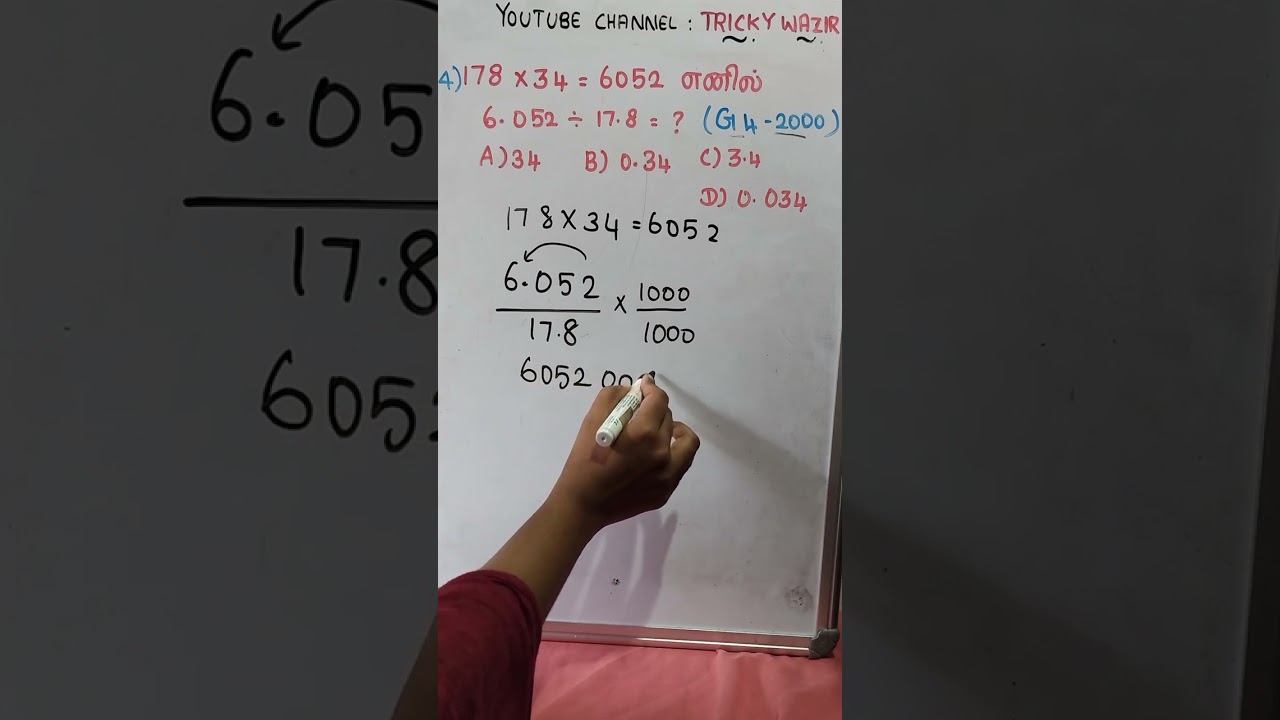 YOUTUBE CHANNEL : TRICKY WAZIR
4) 178 × 34 = 6052 எனில்
6.052 ÷ 17.8 = ? (G4 - 2000)
A) 34 B) 0.34 C) 3.4
D) 0.034
178 × 34 = 6052
6.052 × 1000
17.8 1000
6052 00